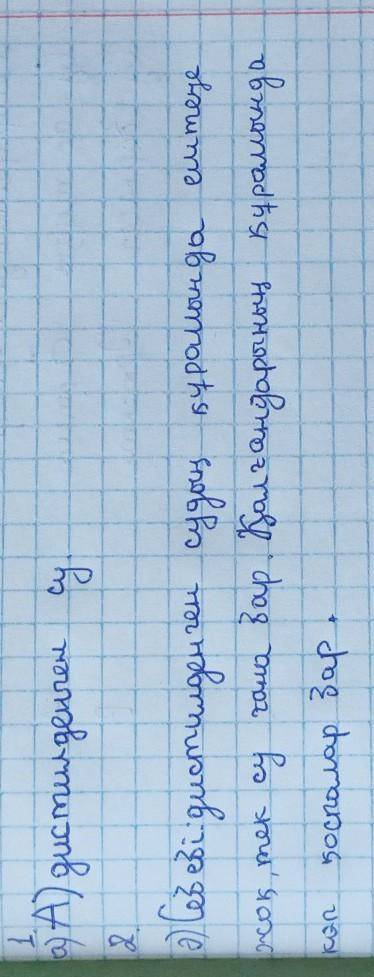 1.
а) А) дистилденген су.
2.
ә) Себебі: дистилденген судың құрамында ештеңе
жоқ, тек су ғана бар. Қалғандарының құрамында
көп қоспалар бар.